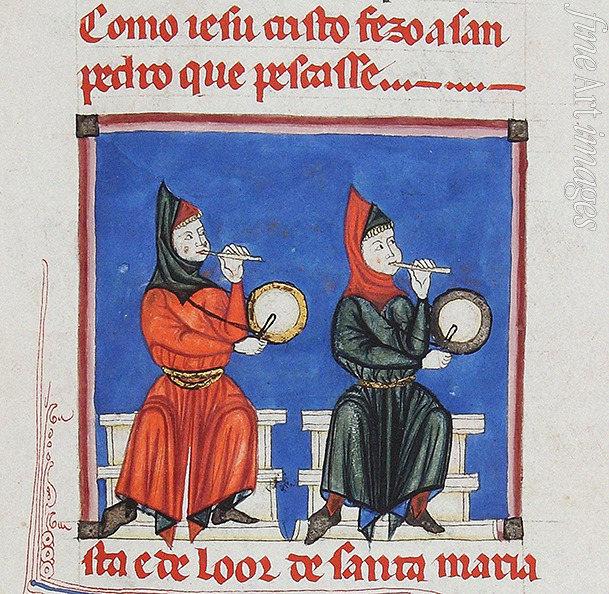 Como iesu cristo fezo a san
pedro que pescasse
sta e de loor de santa maria
fine Art images